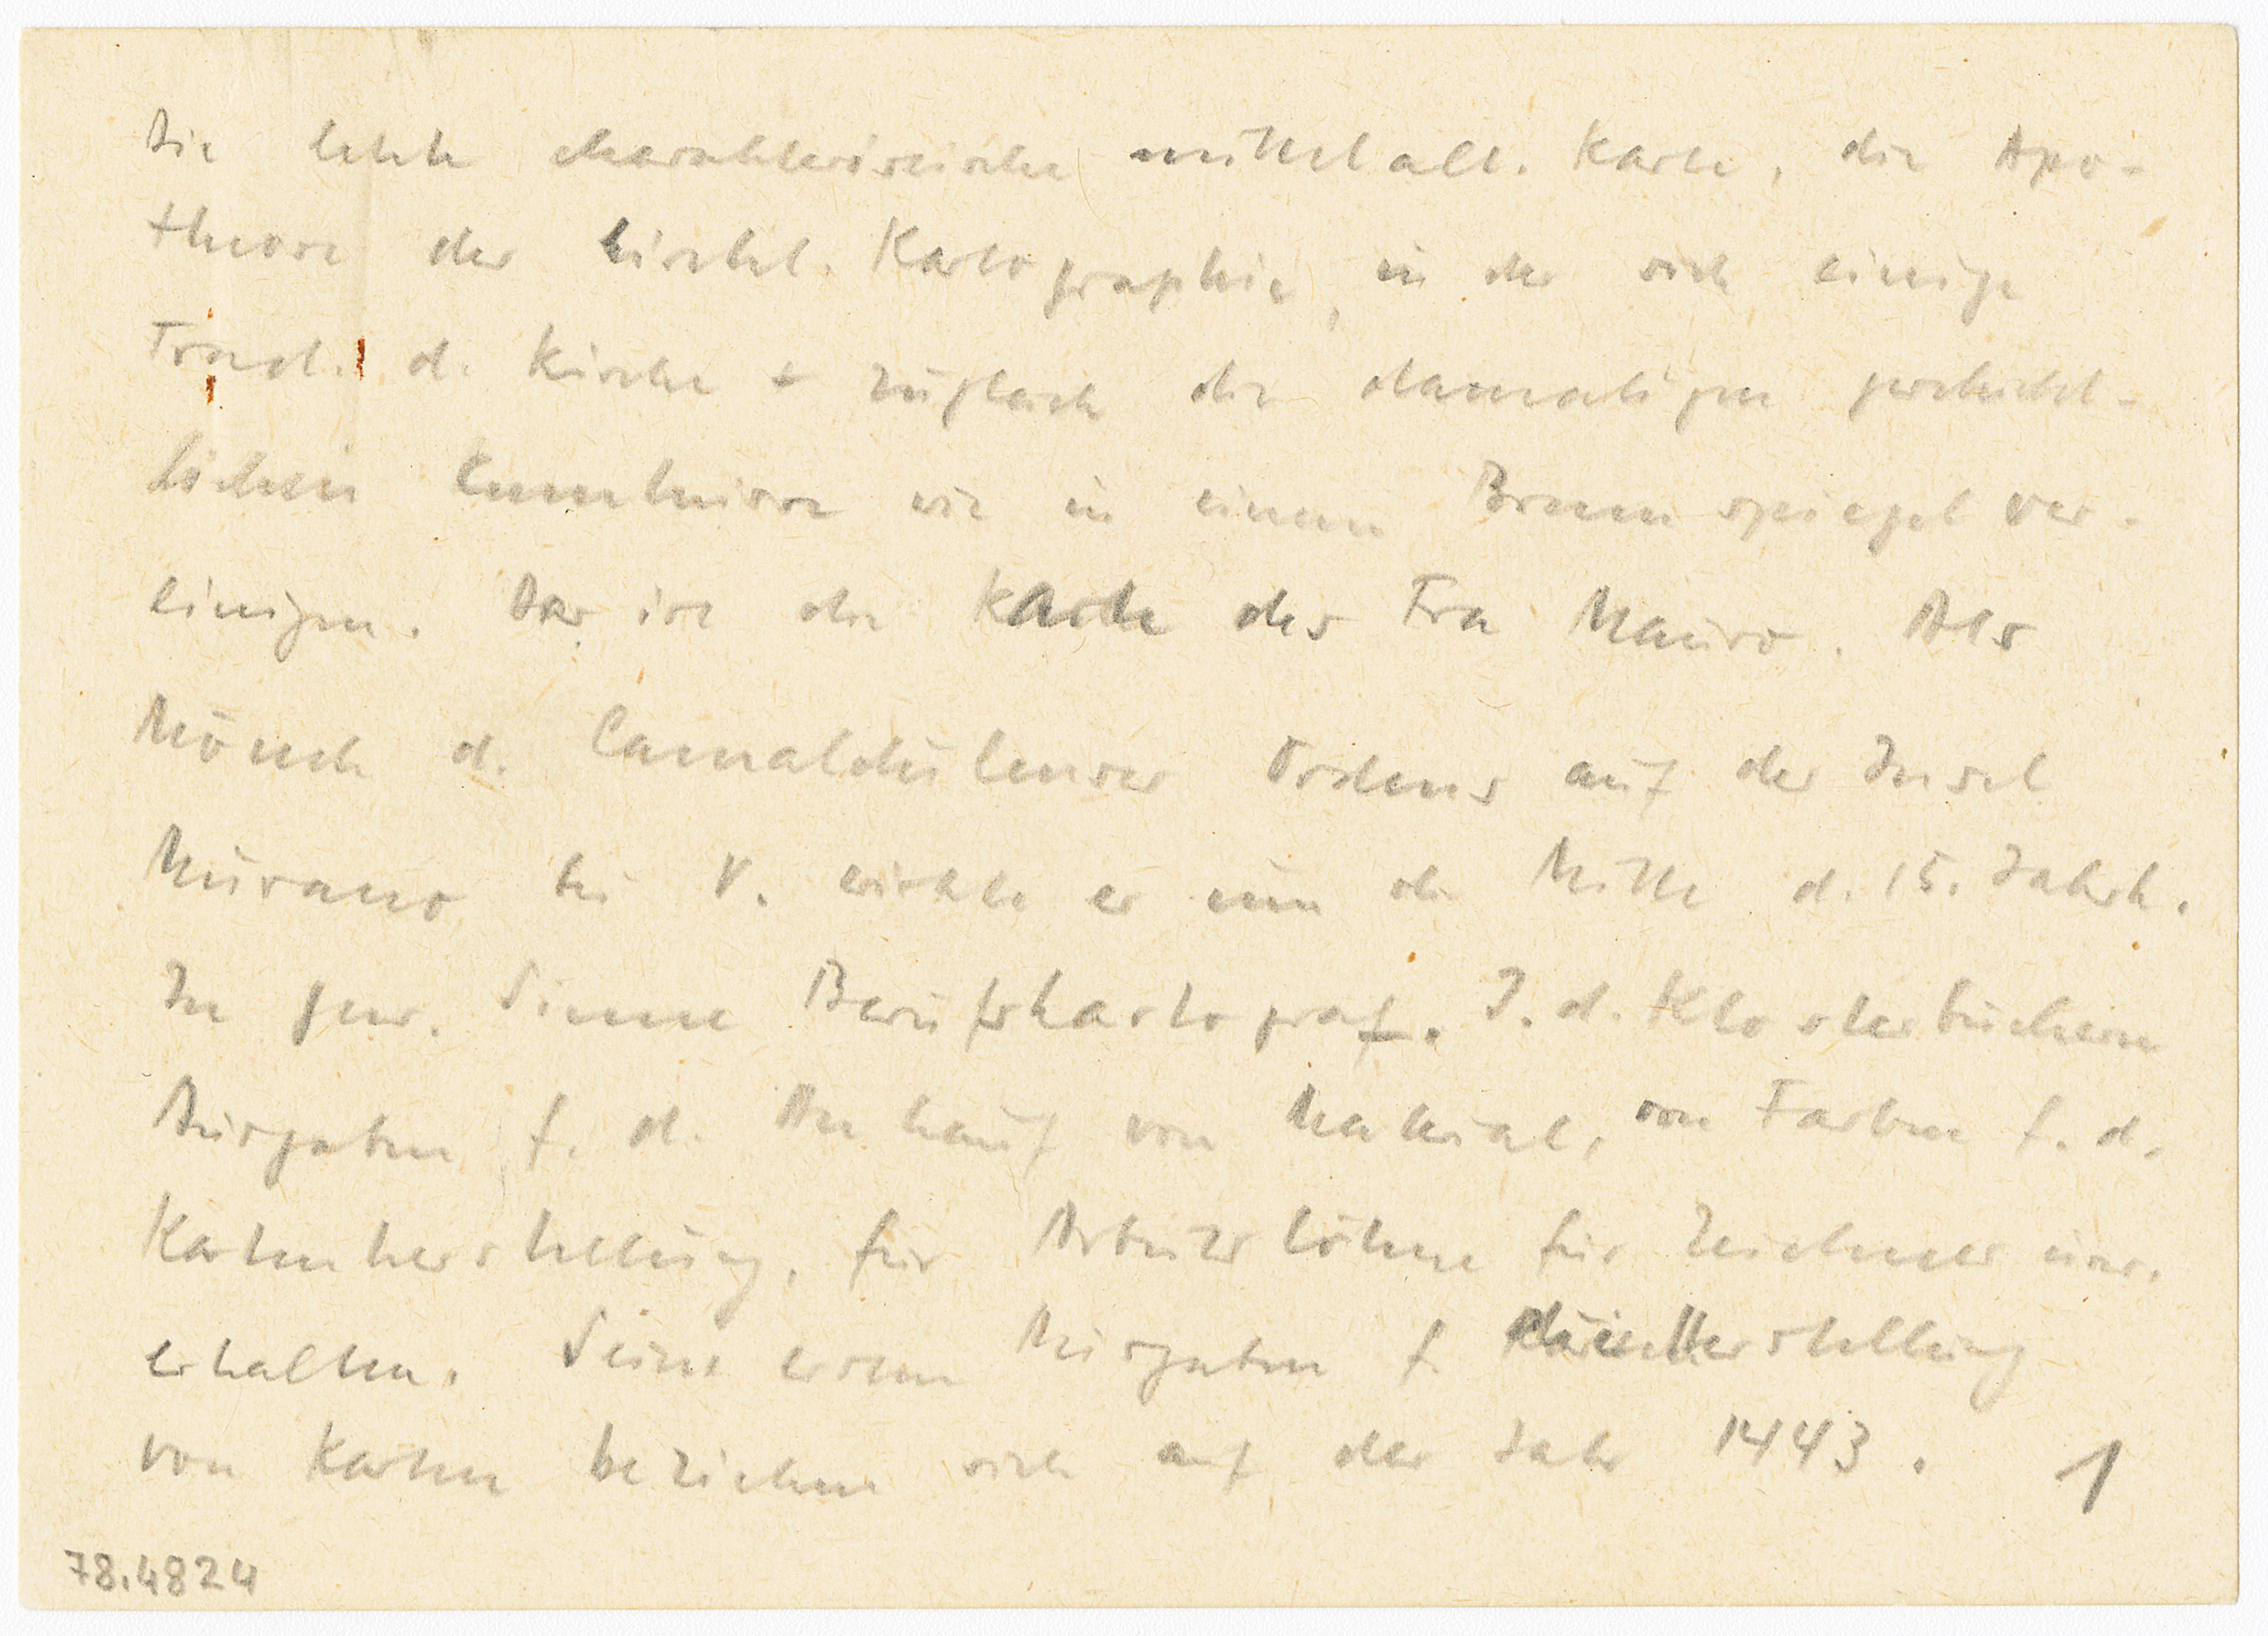 Die letzte charakteristische mittelalt. Karte, die Apo-
theose der kirchl. Kartographie, in der sich einige
Trad. d. Kirche + zugleich die damaligen geschicht-
lichen Kenntnisse wie in einem Brennspiegel ver-
einigen. Das ist die Karte des Fra Mauro. Als
Mönch d. Camaldulenser Ordens auf der Insel
Murano bei V. wirkte er um die Mitte d. 15. Jahrh.
In gew. Sinne Berufskartograf. I. d. Klosterbüchern
Ausgaben f. d. Ankauf von Material, von Farben f. d.
Kartenherstellung, für Arbeitslöhne für Zeichner usw.
erhalten. Seine ersten Ausgaben f. die Herstellung
von Karten beziehen sich auf das Jahr 1443. 1
78.4824